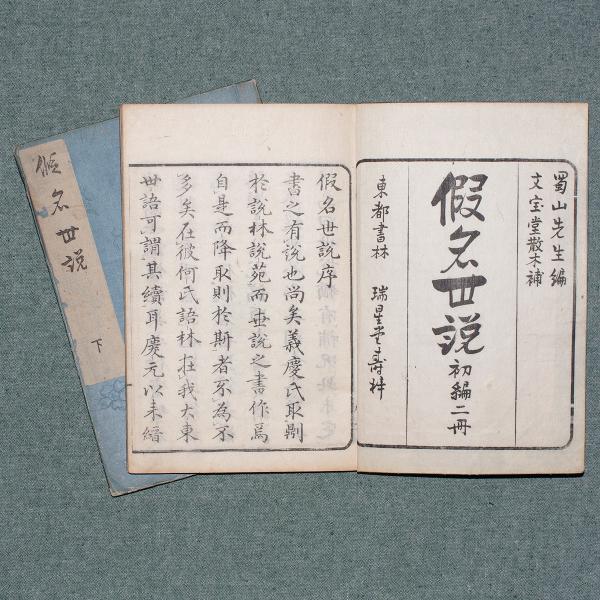 蜀山先生編
文宝堂散木補
假名世説
初編二冊
東都書林　瑞星堂壽梓
假名世説序
書之有説也尚矣義慶氏取劉
於説林説苑而世説之書作焉
自是而降取則於斯者不為不
多矣在彼何氏語林在我大東
世語可謂其續耳慶元以来縉
假名世説
下